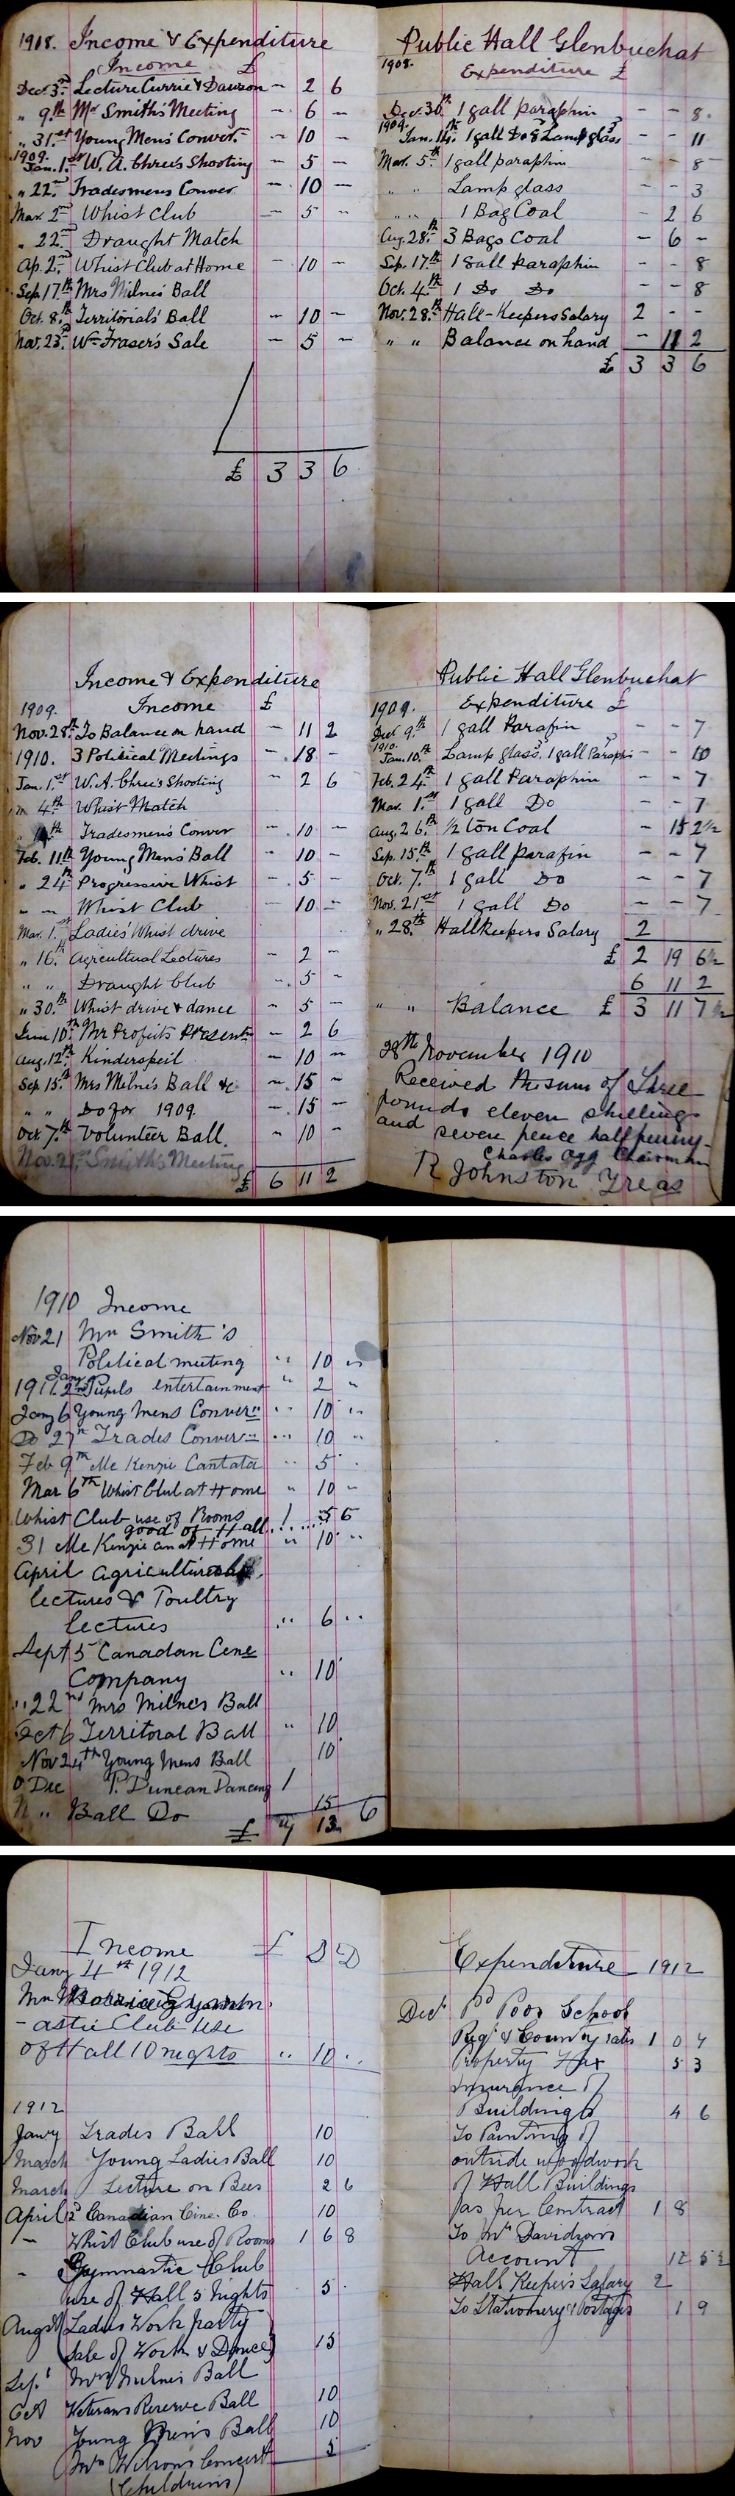 1908. Income & Expenditure
Income £
Dec. 3rd Lecture Currie & Dawson - 2 6
" 9th Mr Smith's Meeting - 6 -
" 31st Young Men's Conver. - 10 -
1909.
Jan. 1st W. A. Chree's Shooting - 5 -
" 22nd Tradesmens Conver - 10 -
Mar. 2nd Whist Club - 5 -
" 22nd Draught Match
Ap. 2nd Whist Club at Home - 10 -
Sep. 17th Mrs Milne's Ball
Oct. 8th Territorials' Ball - 10 -
Nov. 23rd Wm Fraser's Sale - 5 -
£ 3 3 6
Public Hall Glenbuchat
1908.
Expenditure £
Dec. 30th 1 gall paraphin - - 8
1909.
Jan. 14th 1 gall Do & Lamp glass - - 11
Mar. 5th 1 gall paraphin - - 8
" " Lamp glass - - 3
" " 1 Bag Coal - 2 6
Aug. 28th 3 Bags Coal - 6 -
Sep. 17th 1 gall Paraphin - - 8
Oct. 4th 1 Do Do - - 8
Nov. 28th Hall-Keepers Salary 2 - -
" " Balance on hand - 11 2
£ 3 3 6
Income & Expenditure
1909. Income £
Nov. 28th To Balance on hand - 11 2
1910. 3 Political Meetings - 18 -
Jan. 1st W. A. Chree's Shooting - 2 6
" 4th Whist Match
Tradesmen's Conver - 10 -
Feb. 11th Young Men's Ball - 10 -
" 24th Progressive Whist - 5 -
" " Whist Club - 10 -
Mar. 1st Ladies' Whist drive
" 16th Agricultural Lectures - 2 -
" " Draught Club - 5 -
" 30th Whist drive & dance - 5 -
June 10th Mr Profeits Presentn - 2 6
Aug. 12th Kinderspeil - 10 -
Sep. 15th Mrs Milne's Ball &c - 15 -
" " Do for 1909 - 15 -
Oct 7th Volunteer Ball. - 10 -
Nov. 21st Smith's Meeting
£ 6 11 2
Public Hall Glenbuchat
1909. Expenditure £
Dec 9th 1 gall Parafin - - 7
1910.
Jan. 10th Lamp glass, 1 gall Paraphin - - 10
Feb. 24th 1 gall Paraphin - - 7
Mar. 1st 1 gall Do - - 7
Aug. 26th ½ ton Coal - 15 2½
Sep. 15th 1 gall parafin - - 7
Oct. 7th 1 gall Do - - 7
Nov. 21st 1 gall Do - - 7
" 28th Hallkeepers Salary 2
£ 2 19 6½
6 11 2
" " Balance £ 3 11 7½
28th November 1910
Received the sum of Three
pounds eleven shillings
and seven pence halfpenny
Charles Ogg Chairman
R Johnston Treas
1910 Income
Nov 21 Mr Smith's
Political meeting " 10 "
1911 Jany 2nd Pupils entertainment " 2 "
Jany 6 Young Mens Conver " 10 "
Do 27th Trades Conver " 10 "
Feb 9th McKenzie Cantata 5
Mar 6th Whist Club at Home " 10 "
Whist Club use of Rooms 1 5 6
good of Hall
31 McKenzie an at Home " 10 "
April Agricultural
lectures & Poultry
lectures " 6 "
Sept 5 Canadan Cene
Company " 10
" 22nd Mrs Milne's Ball
Oct 6 Territoral Ball " 10
Nov 24th Young Mens Ball 10
Dec P. Duncan Dancing 1
" Ball Do 15
£ 7 13 6
Income £ S D
Jany 4th 1912
Mr
-astic Club use
of Hall 10 nights " 10 "
1912
Jany Trades Ball 10
March Young Ladies Ball 10
March Lecture on Bees 2 6
April 2 Canadian Cine. Co. 10
" - Whist Club use of Rooms 1 6 8
" Gymnastic Club
use of Hall 5 Nights 5
Augst (Ladies Work party
(Sale of Work & Dance) 15
Sept Mrs Milne's Ball
Oct Veterans Reserve Ball 10
Nov Young Men's Ball 10
Mr Wilson's Concert 5
(Childrens)
Expenditure 1912
Dec Pd Poor School
Regt & County rates 1 0 7
Property Tax 5 3
Insurance of
Buildings 4 6
To Painting of
outside woodwork
of Hall Buildings
(as per Contract 1 8
To Mr Davidson's
Account 12 5½
Hall Keeper's Salary 2
To Stationery & Postages 1 9